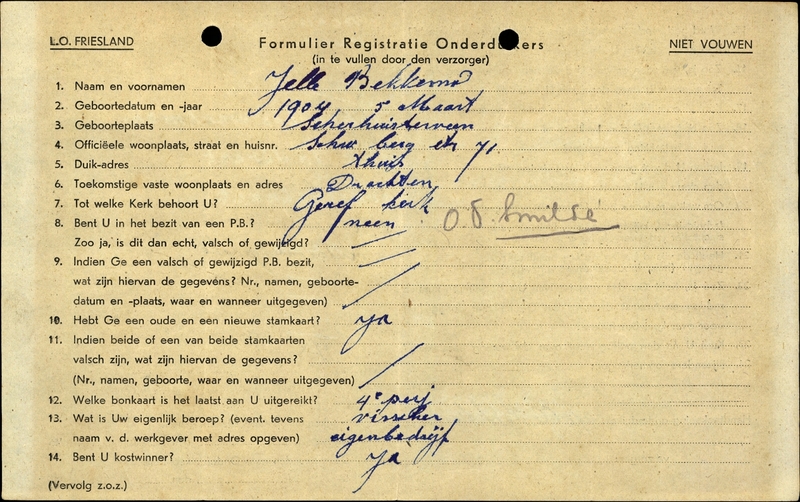 L.O. FRIESLAND
Formulier Registratie Onderduikers
NIET VOUWEN
(in te vullen door den verzorger)
1. Naam en voornamen Jelle Bekkema
2. Geboortedatum en -jaar 1904 5 Maart
3. Geboorteplaats
4. Officiëele woonplaats, straat en huisnr. 71
5. Duik-adres thuis
6. Toekomstige vaste woonplaats en adres Drachten
7. Tot welke Kerk behoort U? Geref kerk
8. Bent U in het bezit van een P.B.? neen O.D. Smilde
Zoo ja, is dit dan echt, valsch of gewijzigd? /
9. Indien Ge een valsch of gewijzigd P.B. bezit, /
wat zijn hiervan de gegevens? Nr., namen, geboorte-
datum en -plaats, waar en wanneer uitgegeven) /
10. Hebt Ge een oude en een nieuwe stamkaart? ja
11. Indien beide of een van beide stamkaarten
valsch zijn, wat zijn hiervan de gegevens?
(Nr., namen, geboorte, waar en wanneer uitgegeven) /
12. Welke bonkaart is het laatst aan U uitgereikt? 4e perj
13. Wat is Uw eigenlijk beroep? (event. tevens visscher
naam v. d. werkgever met adres opgeven) eigenbedrijf
14. Bent U kostwinner? Ja
(Vervolg z.o.z.)